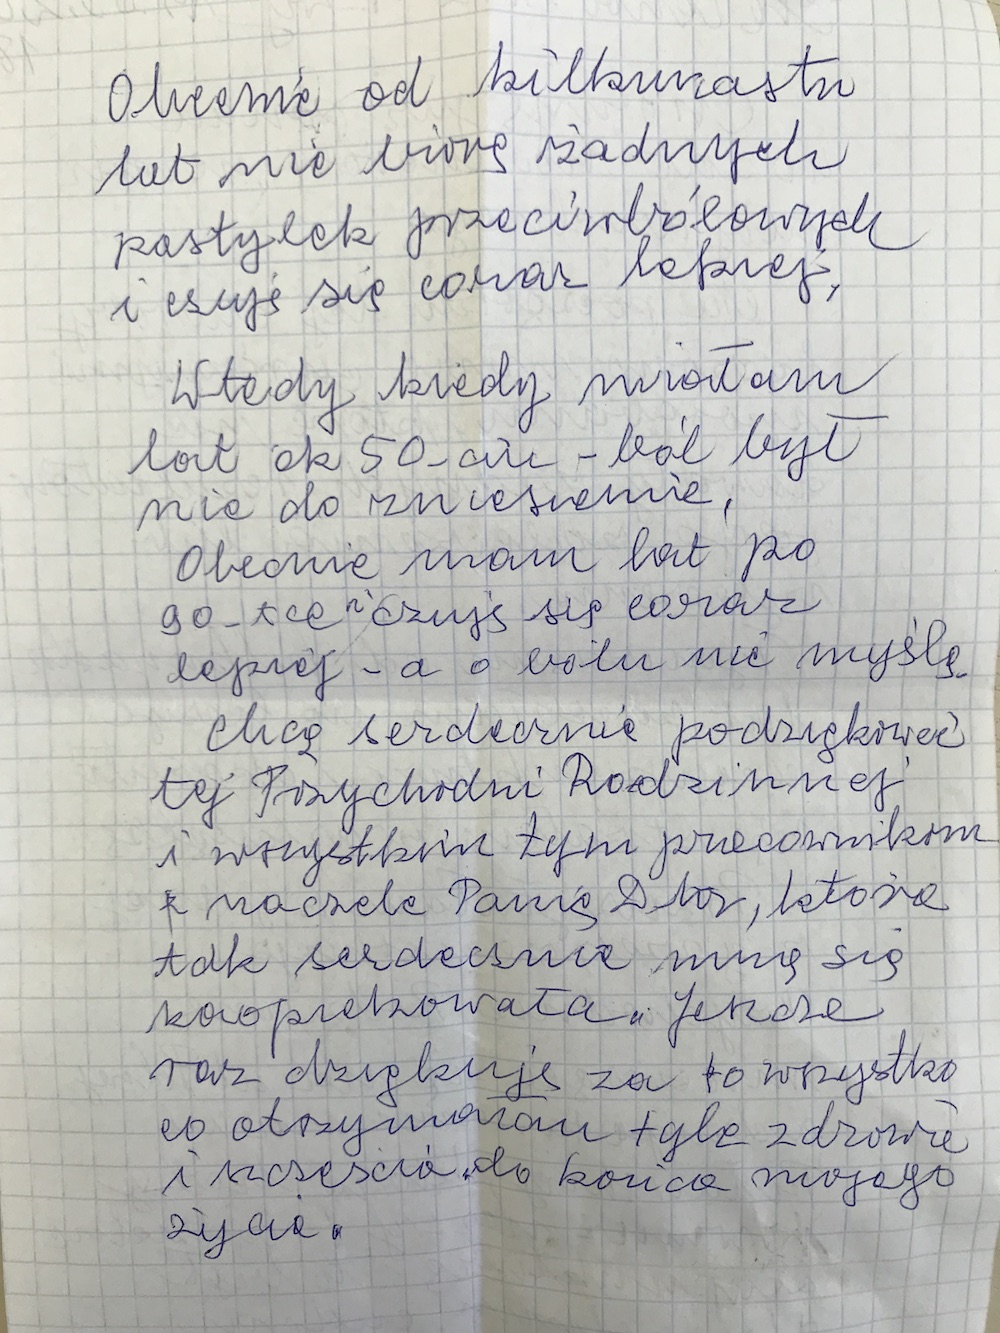 Obecnie od kilkunastu
lat nie biorę żadnych
pastylek przeciwbólowych
i czuję się coraz lepiej,
Wtedy kiedy miałam
lat ok 50-ciu - ból był
nie do zniesienie,
Obecnie mam lat po
90-tce i czuję się coraz
lepiej - a o bólu nie myślę.
Chcę serdecznie podziękować
tej Przychodni Rodzinnej
i wszystkim tym pracownikom
z naczele Panią Dktor, która
tak serdecznie mną się
zaopiekowała. Jeszcze
raz dziękuję za to wszystko
co otrzymałam tyle zdrowie
i szczęścia do końca mojego
życia.